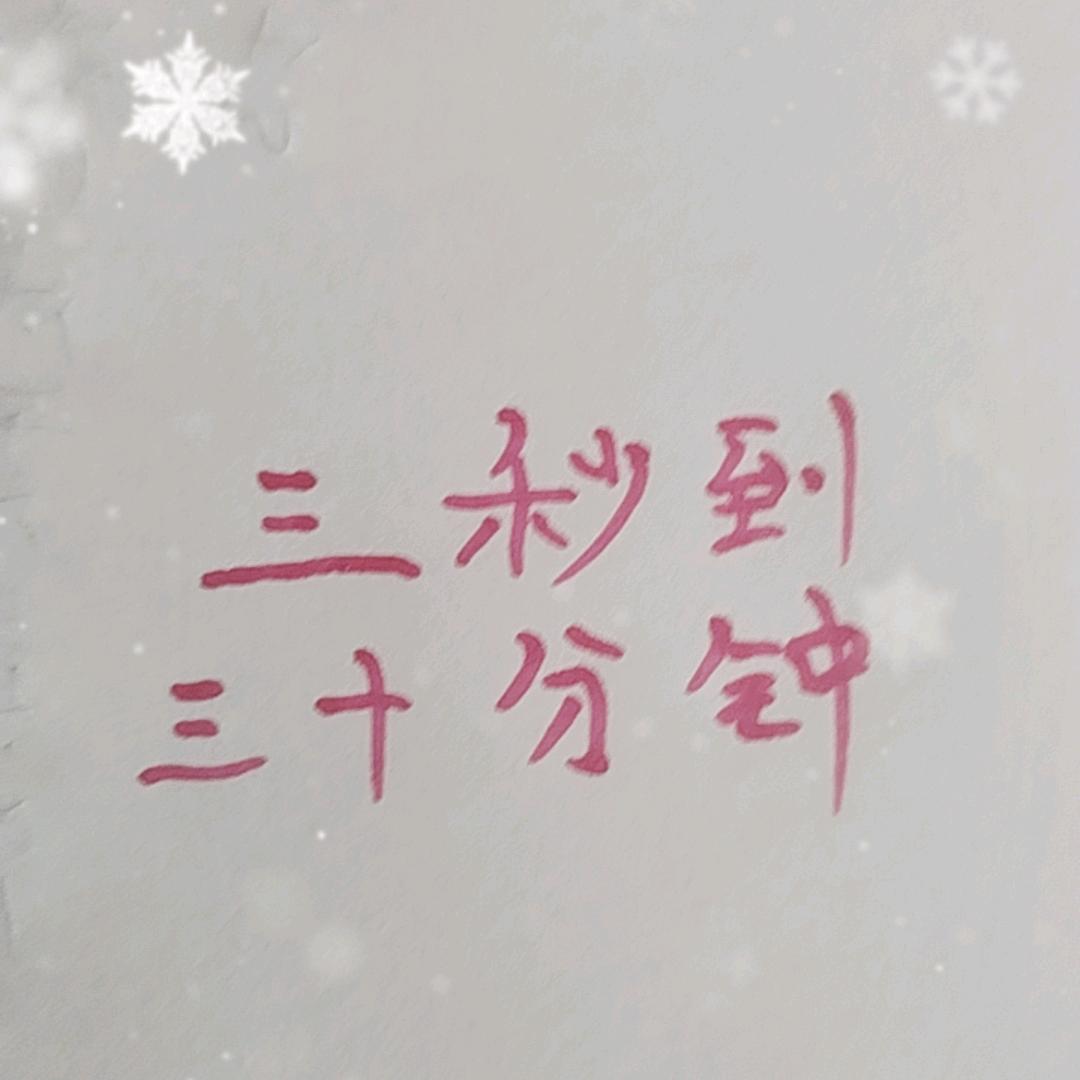 三秒到
三十分钟